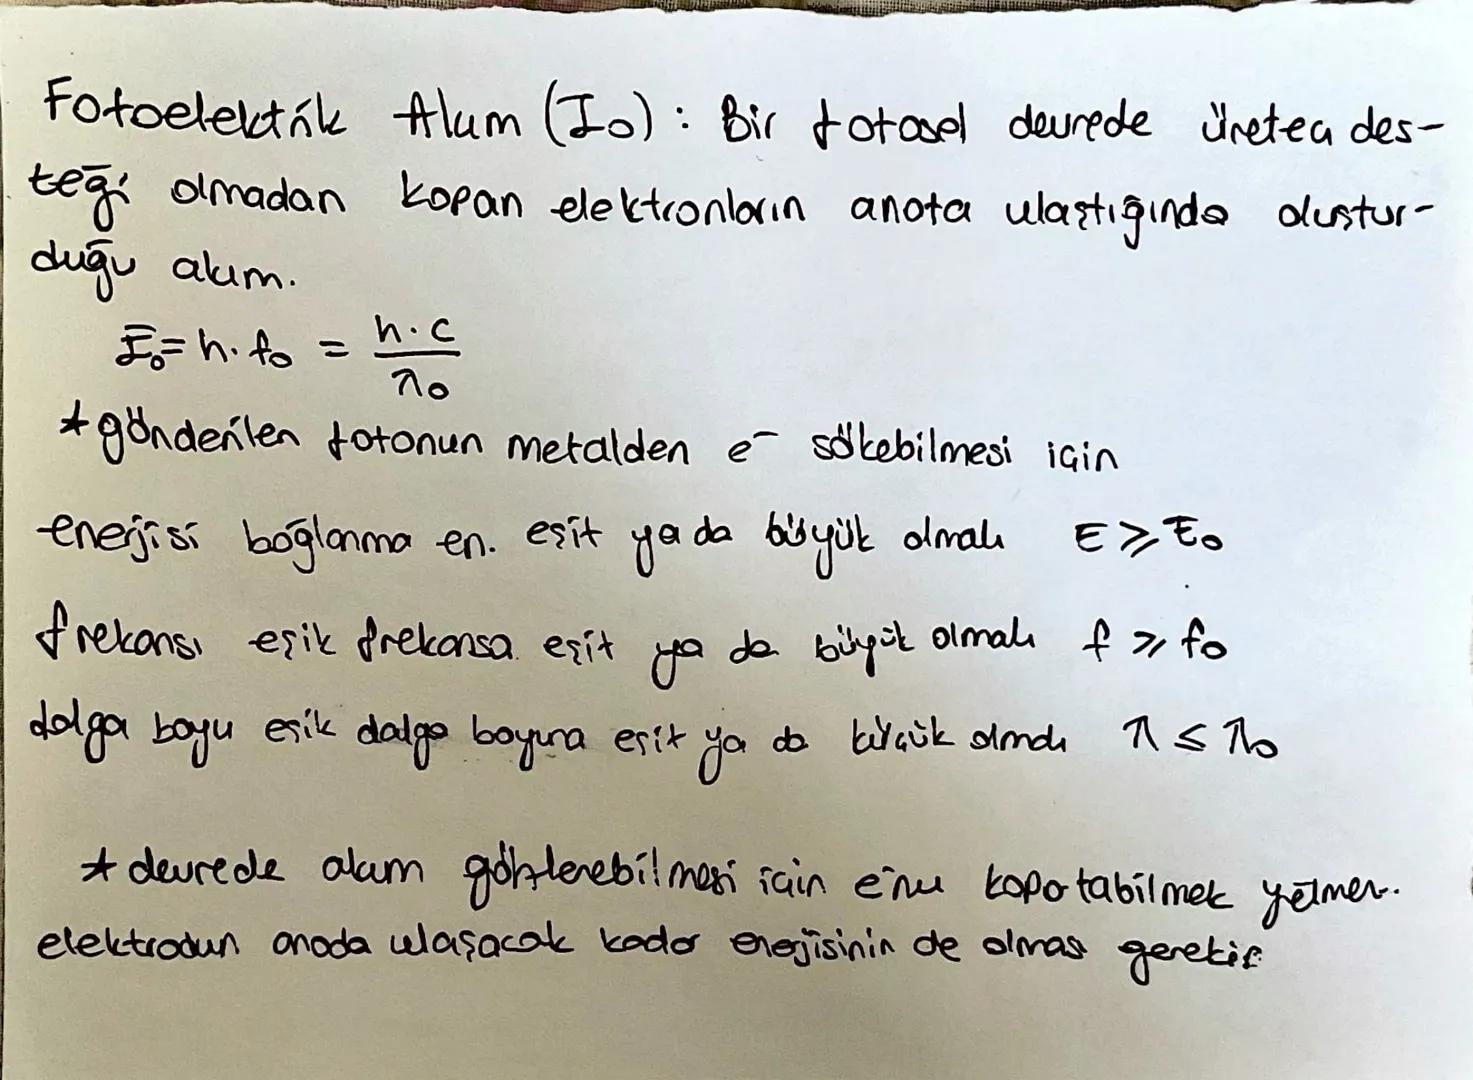 Fotoelektrik Akım (I₀): Bir fotosel devrede üreteç des-
teği olmadan kopan elektronların anota ulaştığında oluştur-
duğu akım.
E₀ = h.f₀ = h.c / λ₀
* gönderilen fotonun metalden e⁻ sökebilmesi için
enerjisi bağlanma en. eşit ya da büyük olmalı E ⩾ E₀
frekansı eşik frekansa eşit ya da büyük olmalı f ⩾ f₀
dalga boyu eşik dalga boyuna eşit ya da küçük olmalı λ ≤ λ₀
* devrede akım gözlenebilmesi için e⁻nu kopartabilmek yetmez.
elektrodun anoda ulaşacak kadar enerjisinin de olması gerekir